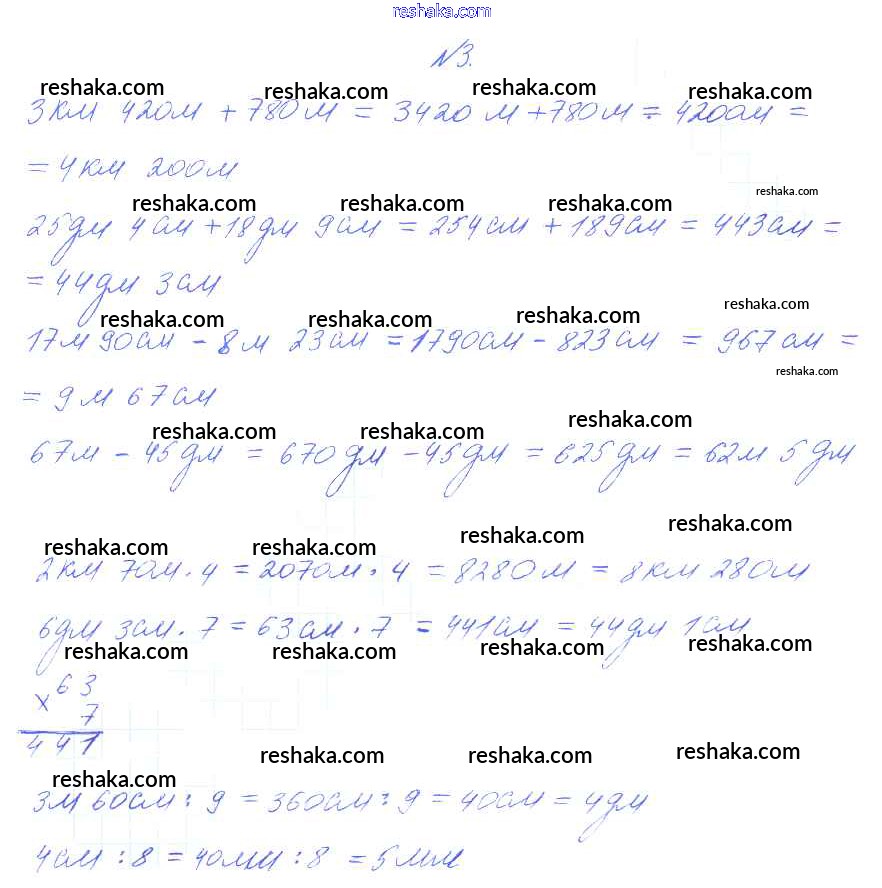 reshaka.com
№3.
reshaka.com reshaka.com reshaka.com reshaka.com
3км 420м + 780м = 3420м + 780м = 4200м =
= 4км 200м
reshaka.com
reshaka.com reshaka.com reshaka.com
25дм 4см + 18дм 9см = 254см + 189см = 443см =
= 44дм 3см
reshaka.com
reshaka.com reshaka.com reshaka.com
17м 90см - 8м 23см = 1790см - 823см = 967см =
reshaka.com
= 9м 67см
reshaka.com reshaka.com reshaka.com
67м - 45дм = 670дм - 45дм = 625дм = 62м 5дм
reshaka.com reshaka.com reshaka.com reshaka.com
2км 70м · 4 = 2070м · 4 = 8280м = 8км 280м
6дм 3см · 7 = 63см · 7 = 441см = 44дм 1см
reshaka.com reshaka.com reshaka.com reshaka.com
× 63
7
441
reshaka.com reshaka.com reshaka.com reshaka.com
3м 60см : 9 = 360см : 9 = 40см = 4дм
4см : 8 = 40мм : 8 = 5мм